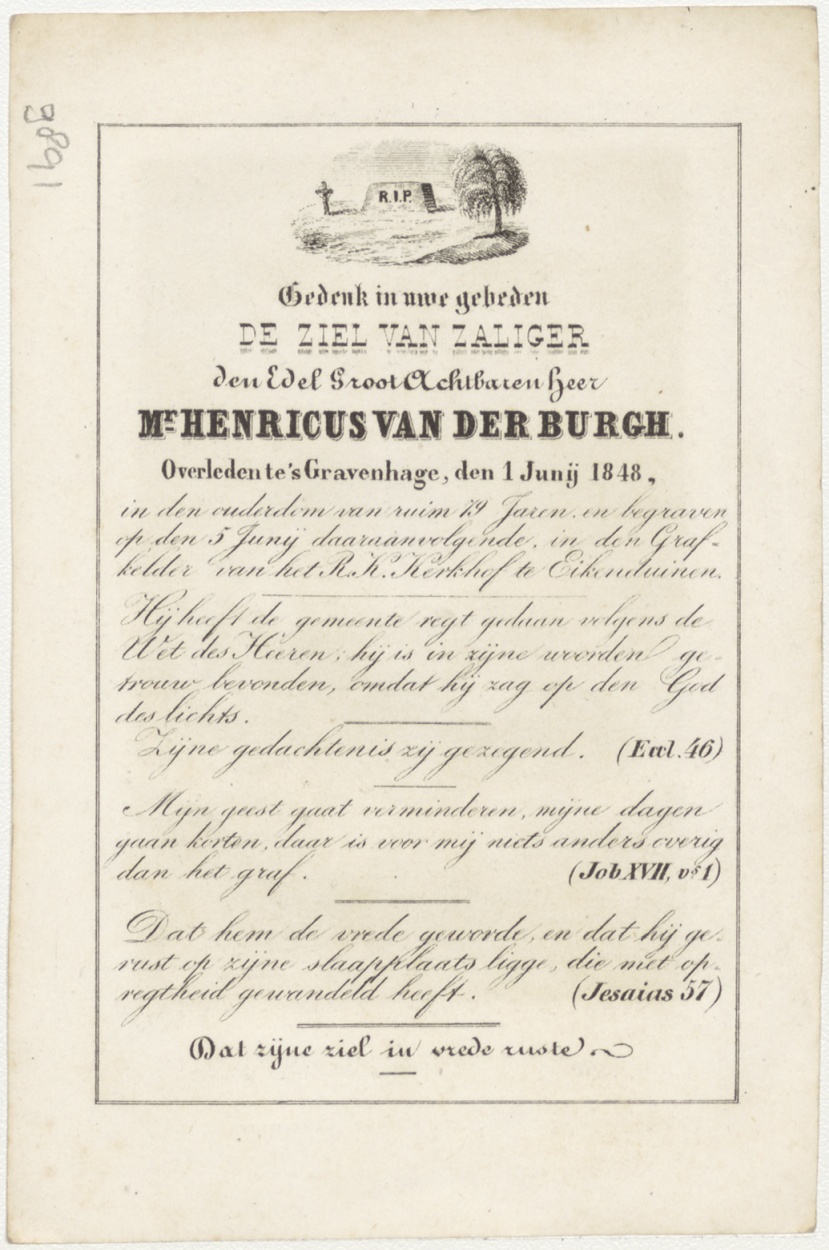 9891
R.I.P.
Gedenk in uwe gebeden
DE ZIEL VAN ZALIGER
den Edel Groot Achtbaren Heer
Mr. HENRICUS VAN DER BURGH.
Overleden te 's Gravenhage, den 1 Junij 1848,
in den ouderdom van ruim 79 Jaren. en begraven
op den 5 Junij daaraanvolgende. in den Graf-
kelder van het R.K. Kerkhof te Eikenduinen.
Hij heeft de gemeente regt gedaan volgens de
Wet des Heeren; hij is in zijne woorden ge-
trouw bevonden, omdat hij zag op den God
des lichts.
Zijne gedachtenis zij gezegend. (Eccl. 46)
Mijn geest gaat verminderen, mijne dagen
gaan korten, daar is voor mij niets anders overig
dan het graf. (Job XVII, vs 1)
Dat hem de vrede geworde, en dat hij ge-
rust op zijne slaapplaats ligge, die met op-
regtheid gewandeld heeft. (Jesaias 57)
Dat zijne ziel in vrede ruste